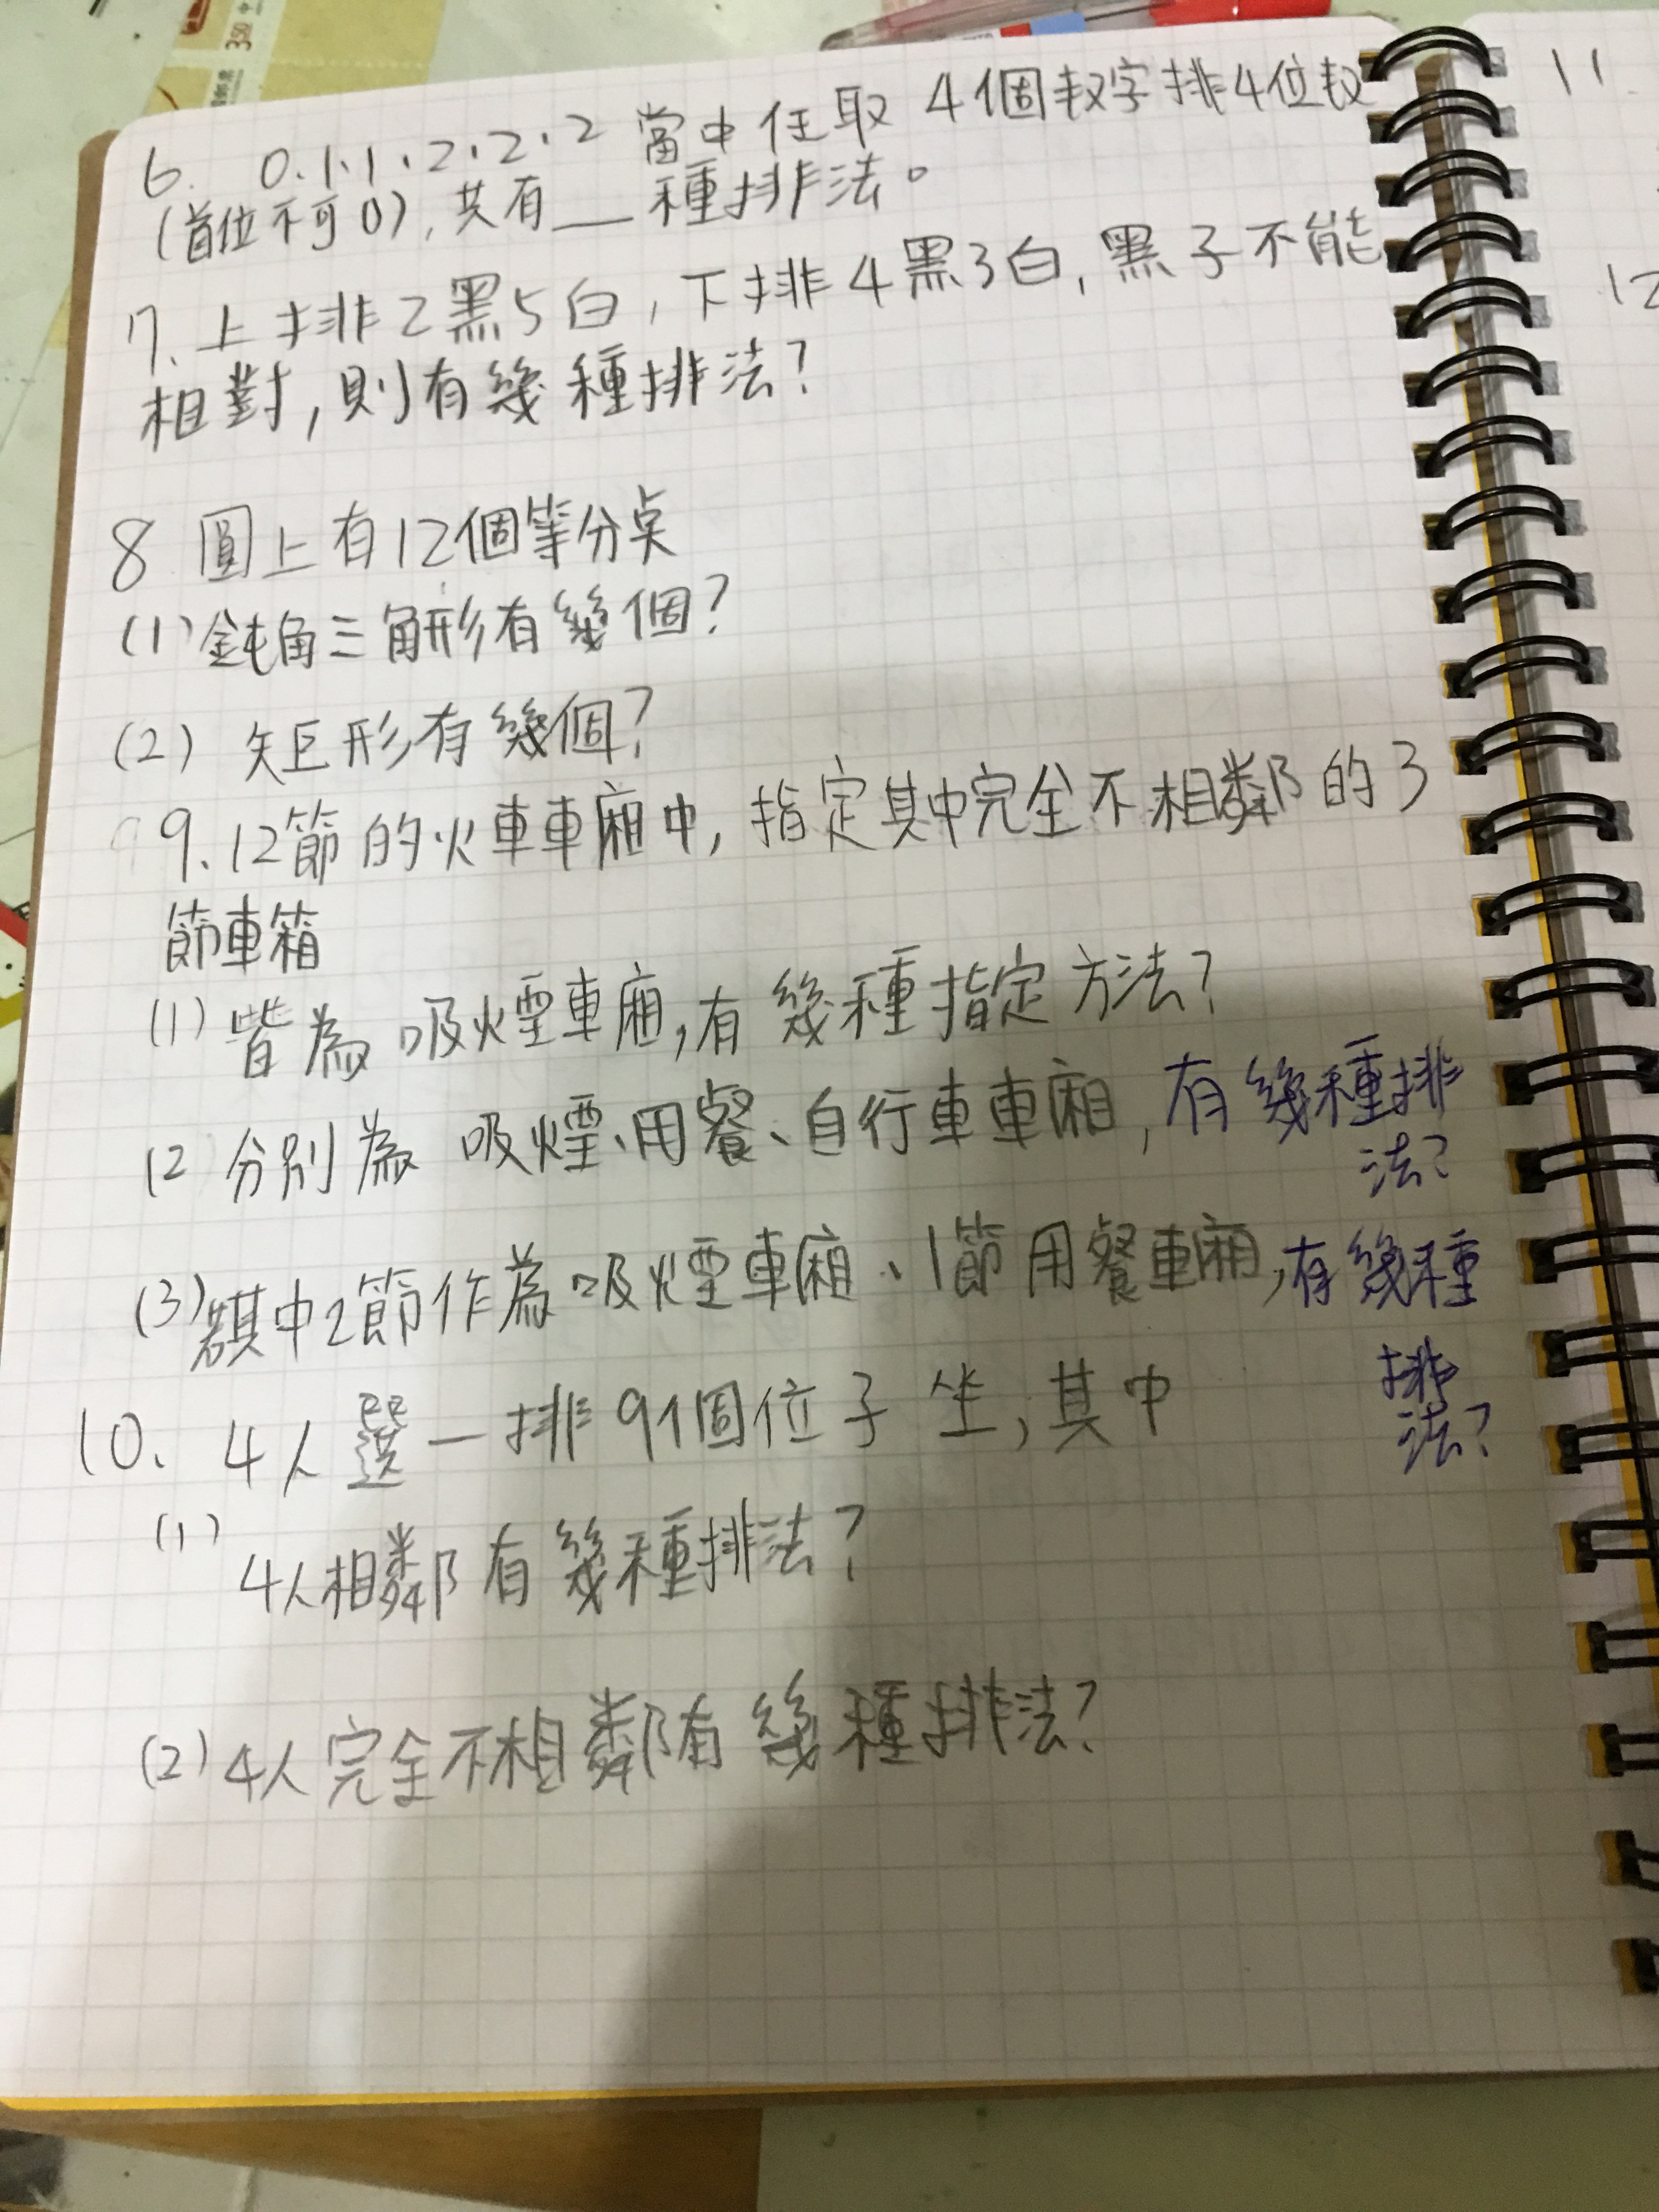 350
6. 0.1.1.2.2.2 當中任取 4個数字排4位数
(首位不可0), 共有__種排法。
7. 上排2黑5白, 下排4黑3白, 黑子不能
相對, 則有幾種排法?
8 圓上有12個等分点
(1) 鈍角三角形有幾個?
(2) 矩形有幾個?
9. 12節的火車車廂中, 指定其中完全不相鄰的3
節車箱
(1) 皆為吸煙車廂, 有幾種指定方法?
(2 分別為 吸煙、用餐、自行車車廂, 有幾種排
法?
(3) 其中2節作為吸煙車廂、1節用餐車廂, 有幾種
排
法?
10. 4人選一排9個位子坐, 其中
(1)
4人相鄰有幾種排法?
(2) 4人完全不相鄰有幾種排法?
11
12